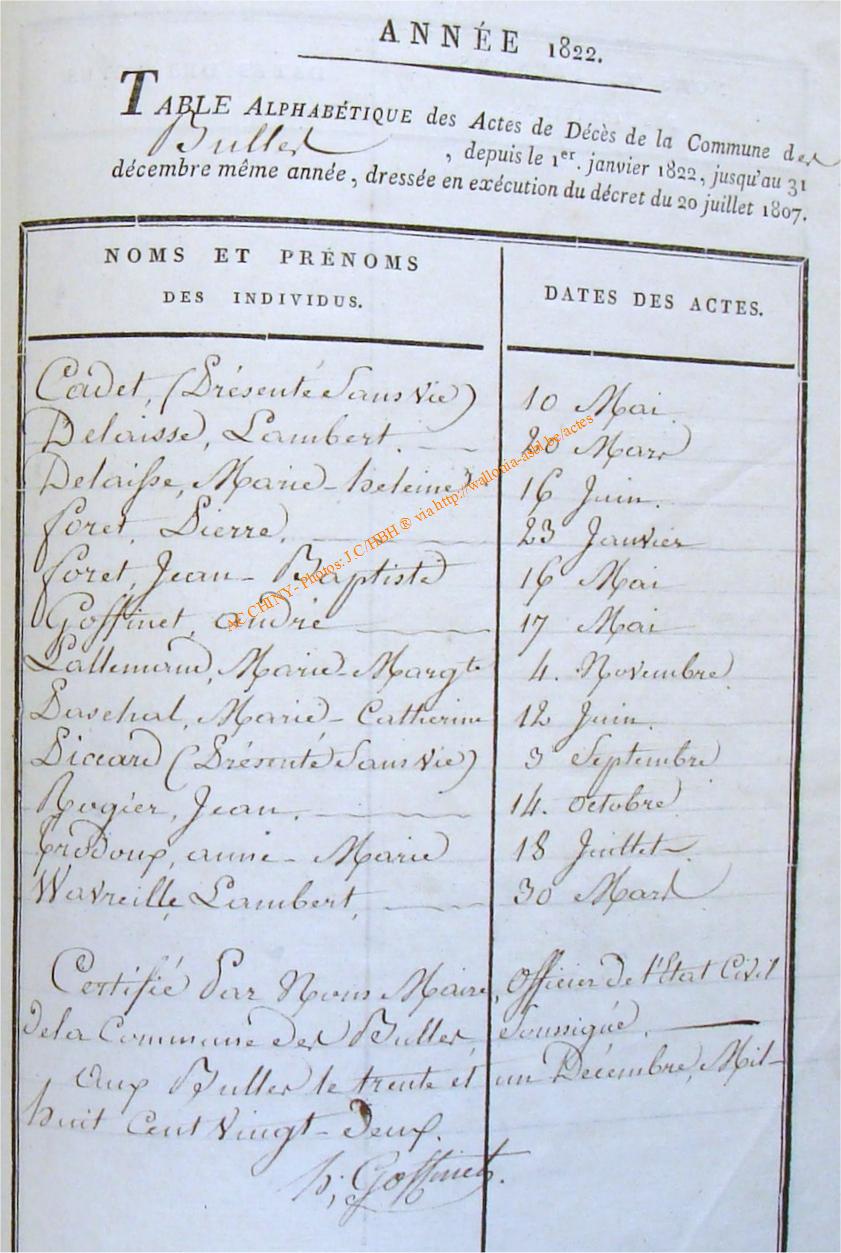 ANNÉE 1822.
TABLE ALPHABÉTIQUE des Actes de Décès de la Commune des
Bulles, depuis le 1er. janvier 1822, jusqu'au 31
décembre même année, dressée en exécution du décret du 20 juillet 1807.
NOMS ET PRÉNOMS
DES INDIVIDUS.
DATES DES ACTES.
Cadet, (Présenté Sans vie) 10 Mai.
Delaisse, Lambert. 20 Mars
Delaisse, Marie-heleine 16 Juin.
foret, Pierre. 23 Janvier
foret, Jean-Baptiste 16 Mai
Goffinet, andré 17 Mai
Lallemand, Marie-Margte 4. Novembre
Paschal, Marie-Catherine 12 Juin.
Piccard (Présenté Sans vie) 3 Septembre
Rogier, Jean. 14. octobre
trodoux, anne-Marie 18 Juillet
Wavreille, Lambert, 30 Mars
Certifié Par Nous Maire, officier de l'Etat Civil
de la Commune des Bulles, Soussigné.
Aux Bulles le trente et un Décembre, Mil-
huit Cent vingt-deux.
h; Goffinet.
AC CHINY - Photos: J C/HBH ® via http://wallonia-asbl.be/actes